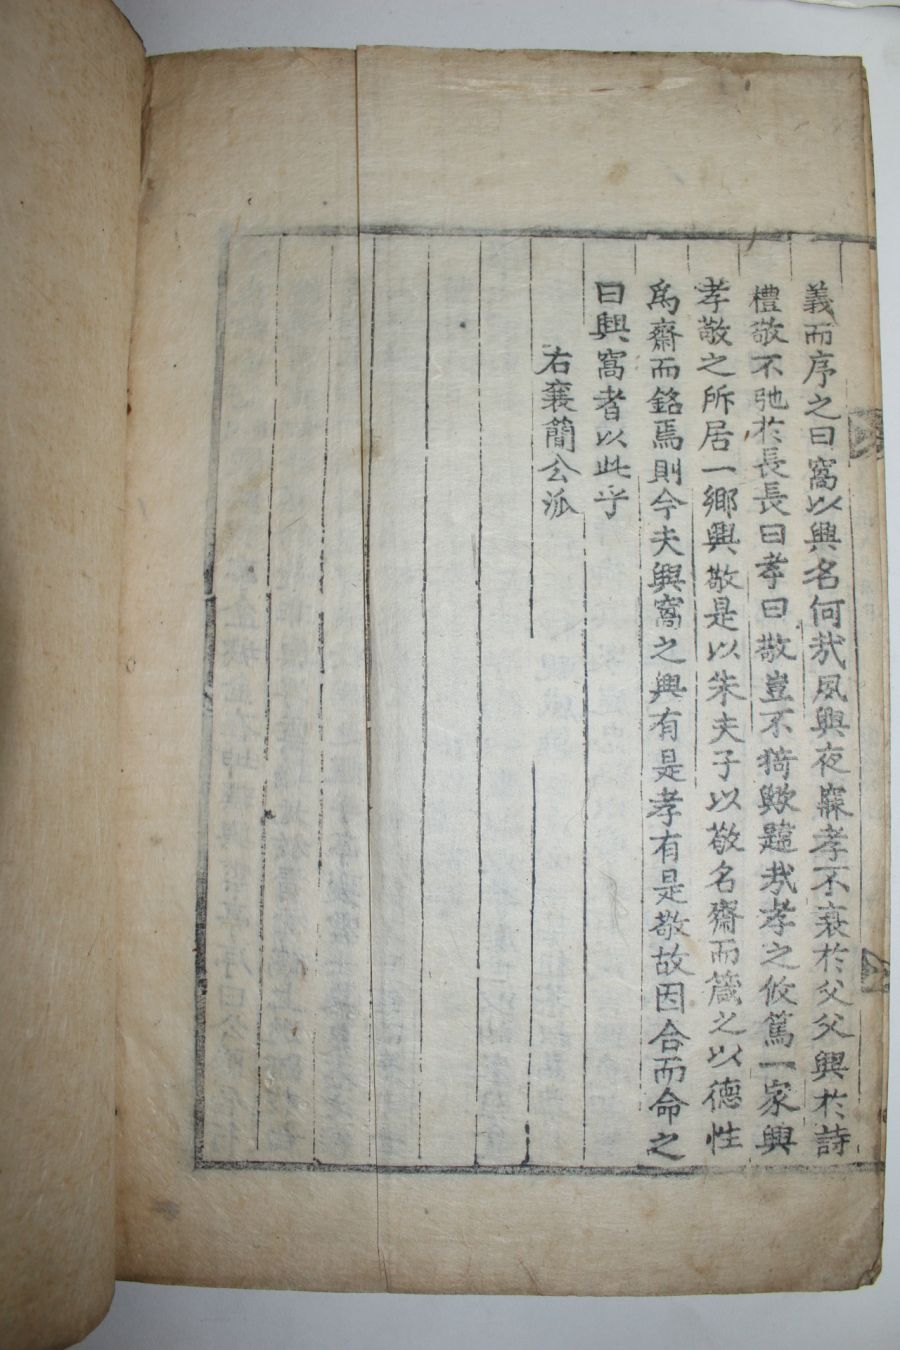 義而序之曰窩以興名何哉夙興夜寐孝不衰於父父興於詩
禮敬不弛於長長曰孝曰敬豈不猗歟韙哉孝之攸篤一家興
孝敬之所居一鄉興敬是以朱夫子以敬名齋而箴之以德性
爲齋而銘焉則今夫興窩之興有是孝有是敬故因合而命之
曰興窩者以此乎
右襄簡公派